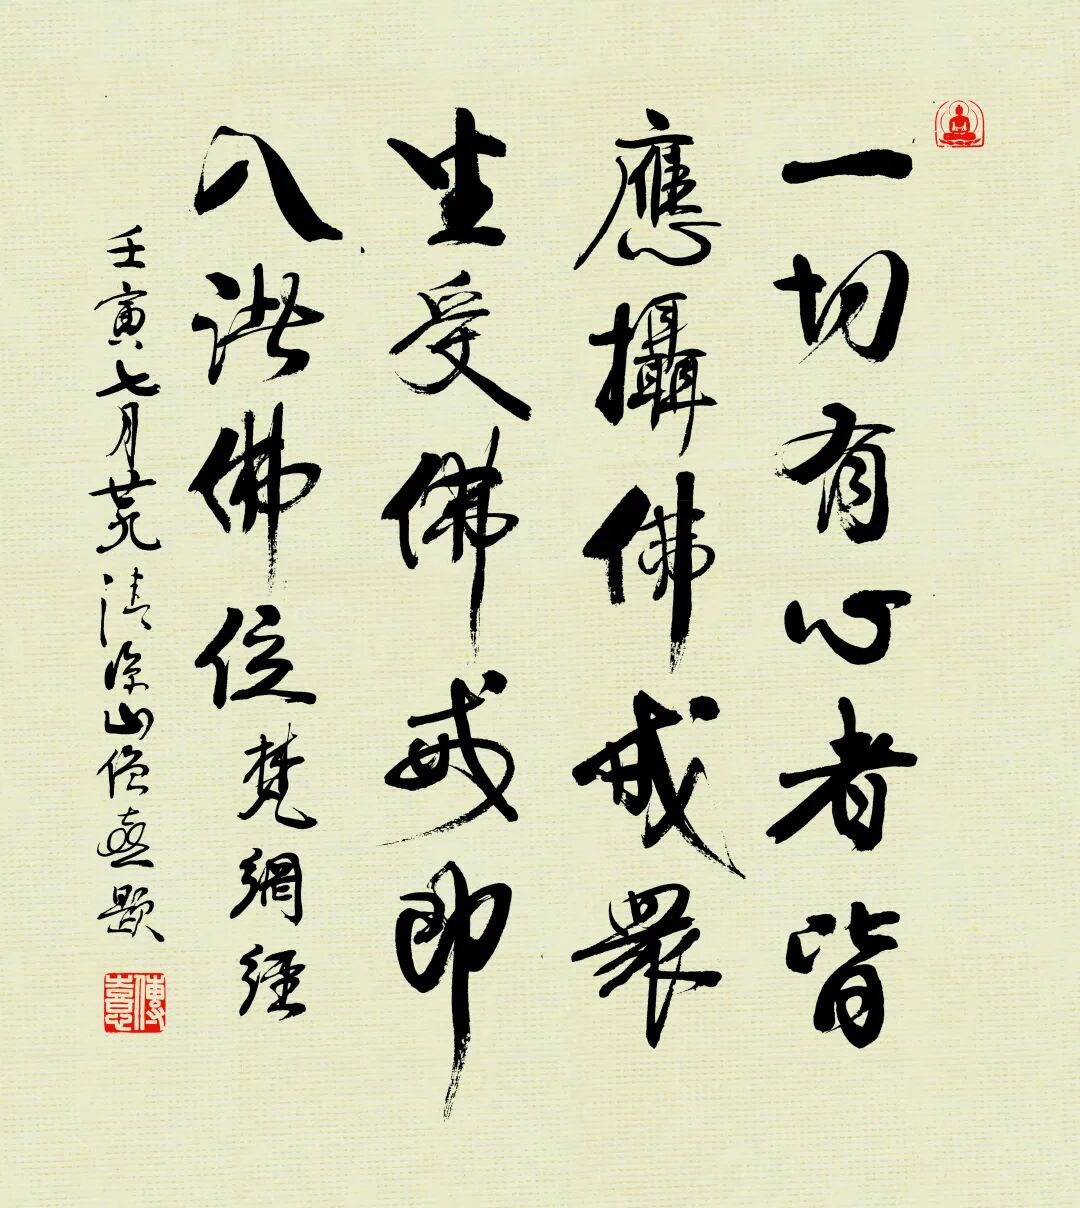 一切有心者皆
應攝佛戒眾
生受佛戒即
入諸佛位梵網經
壬寅七月廿九清涼山僧憙題
傳憙